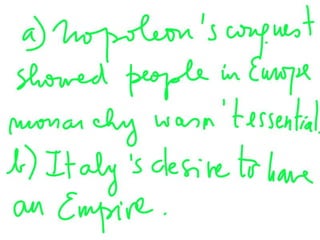 a) Napoleon's conquest
showed people in Europe
monarchy wasn't essential.
b) Italy's desire to have
an Empire.